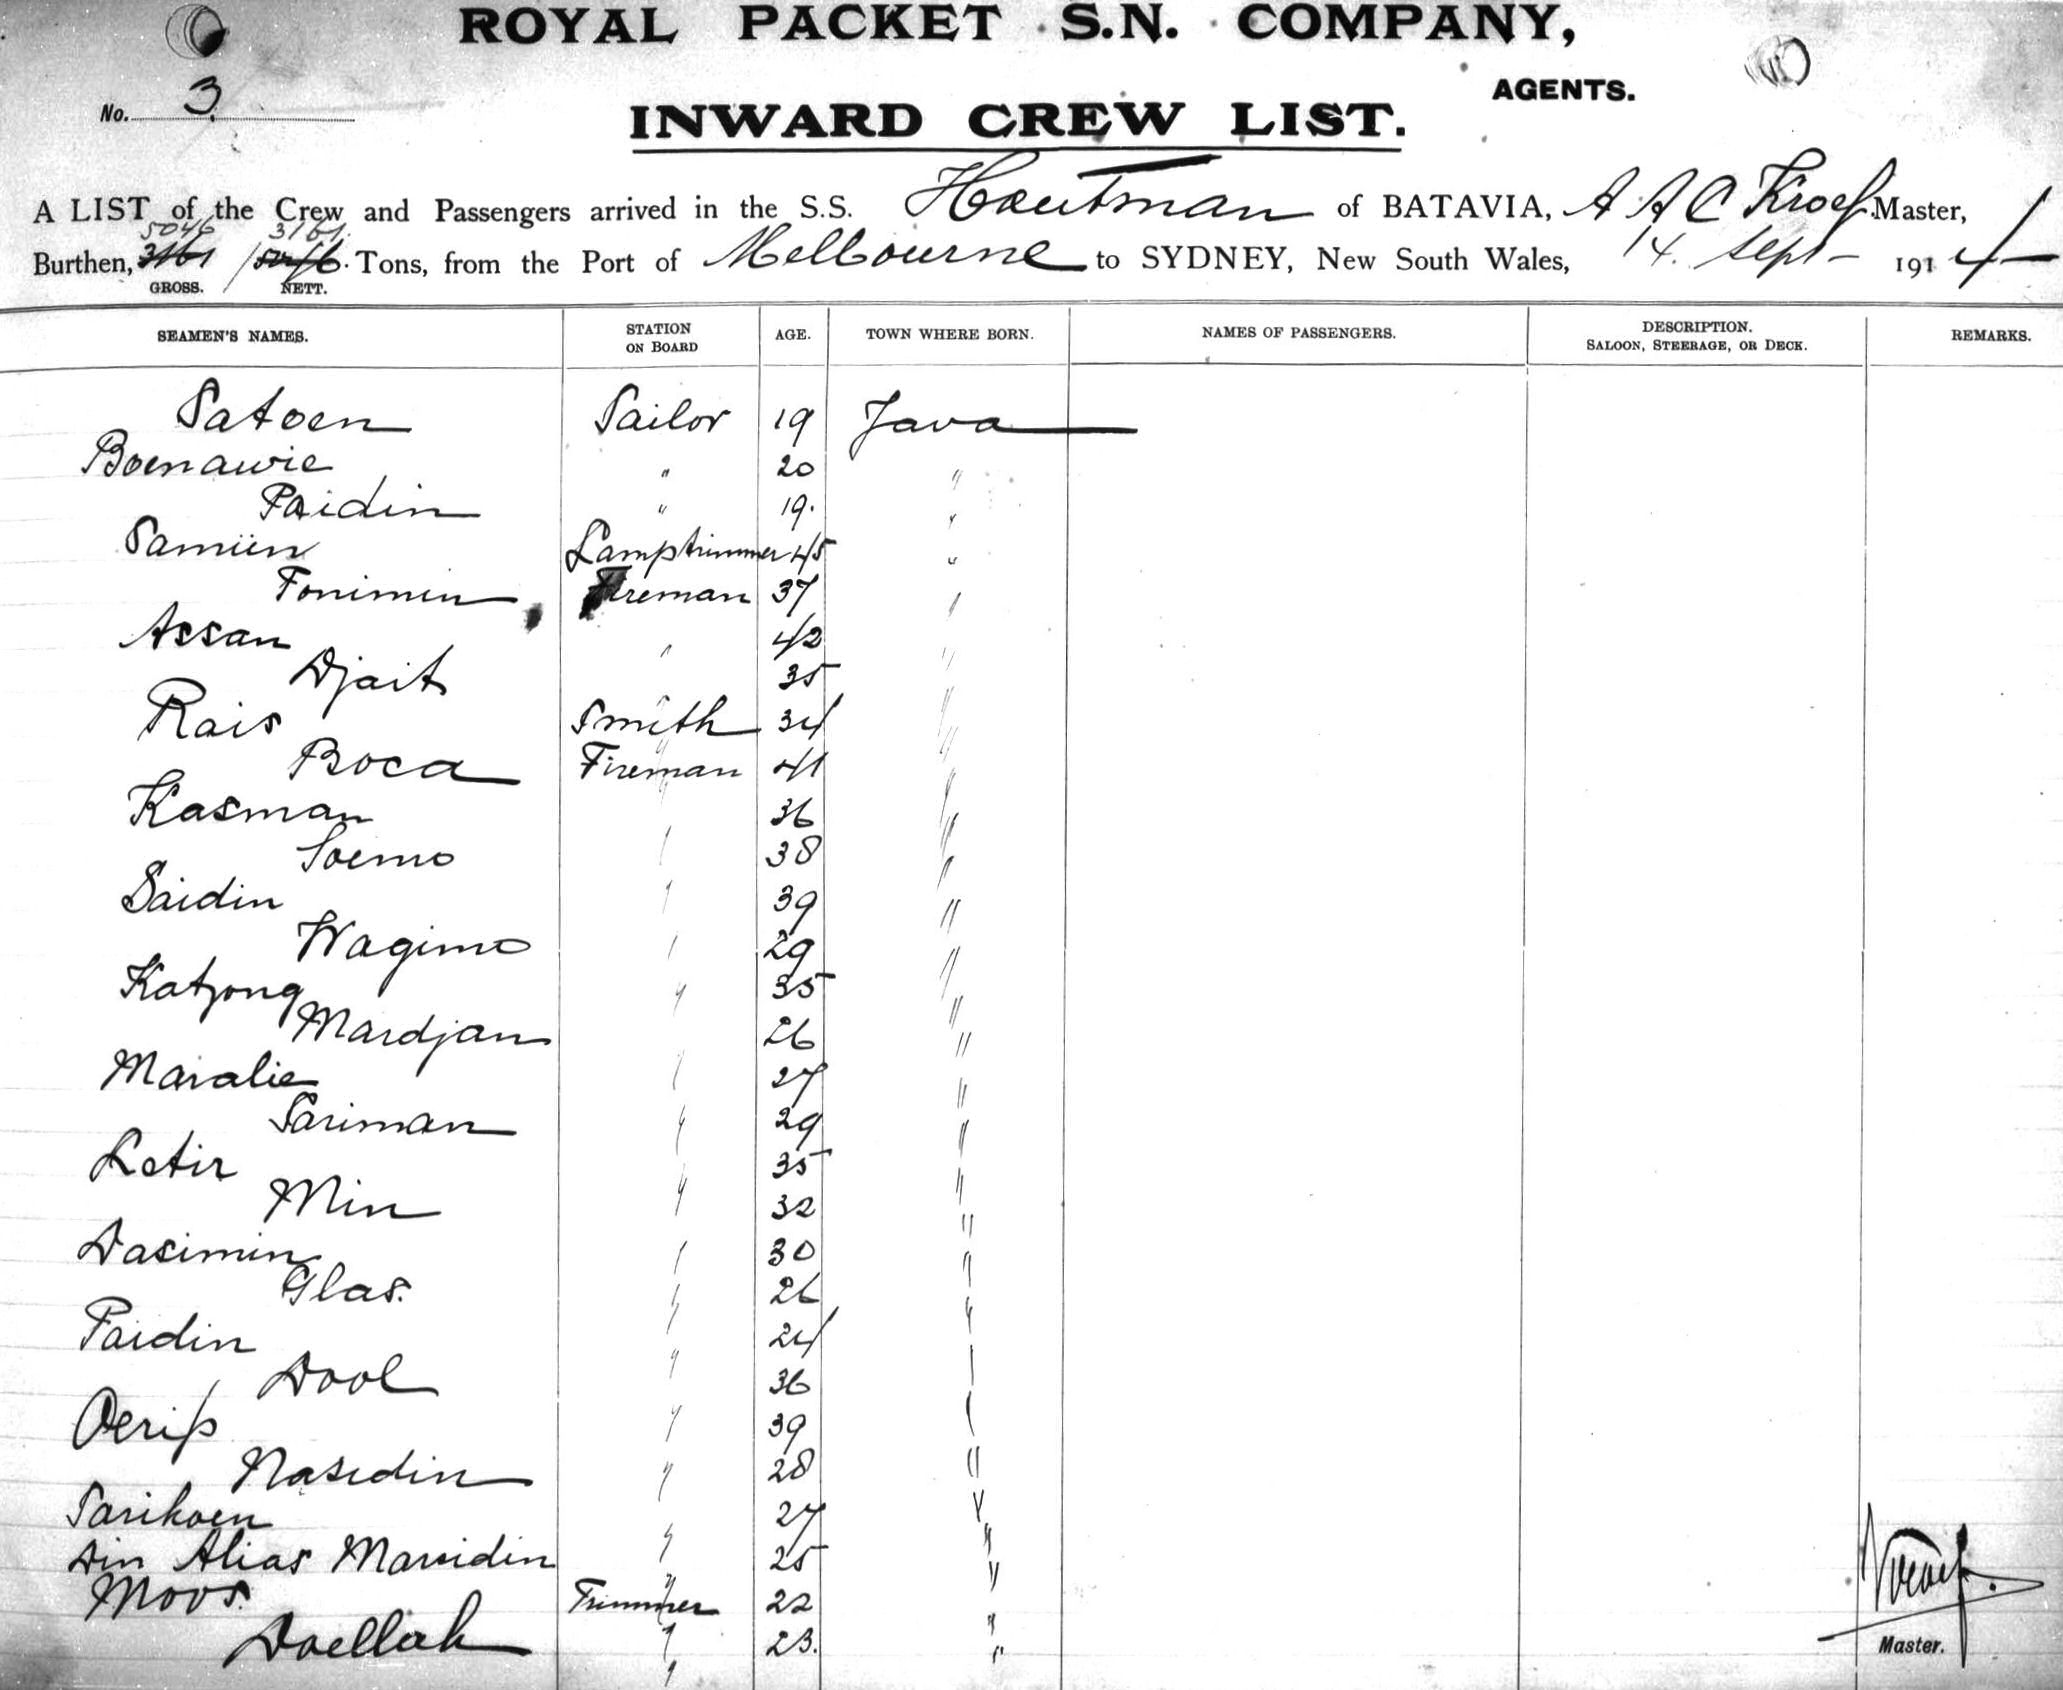 ROYAL PACKET S.N. COMPANY,
AGENTS.
No. 3
INWARD CREW LIST.
A LIST of the Crew and Passengers arrived in the S.S. Houtman of BATAVIA, A A C Kroef Master,
5046 3161
Burthen, 3161 / 5046 Tons, from the Port of Melbourne to SYDNEY, New South Wales, 14. Sept - 1914
GROSS. NETT.
SEAMEN'S NAMES. STATION ON BOARD AGE. TOWN WHERE BORN. NAMES OF PASSENGERS. DESCRIPTION. SALOON, STEERAGE, OR DECK. REMARKS.
Satoen Sailor 19 Java
Boenawie " 20 "
Paidin " 19. "
Samiin Lamptrimmer 45 "
Tonimin Fireman 37 "
Assan " 42 "
Djait 35 "
Rais Smith 34 "
Boca Fireman 41 "
Kasman " 36 "
Soemo " 38 "
Saidin " 39 "
Wagimo " 29 "
Katjong " 35 "
Mardjan 26 "
Maralie " 27 "
Sariman " 29 "
Letir " 35 "
Min 32 "
Dasimin " 30 "
Glas. " 26 "
Paidin 24 "
Dool " 36 "
Oerip " 39 "
Nasidin " 28 "
Sarikoen 27 "
Din Alias Marsidin " 25 "
Moos. Trimmer 22 "
Doellah " 23. "
Kroef.
Master.